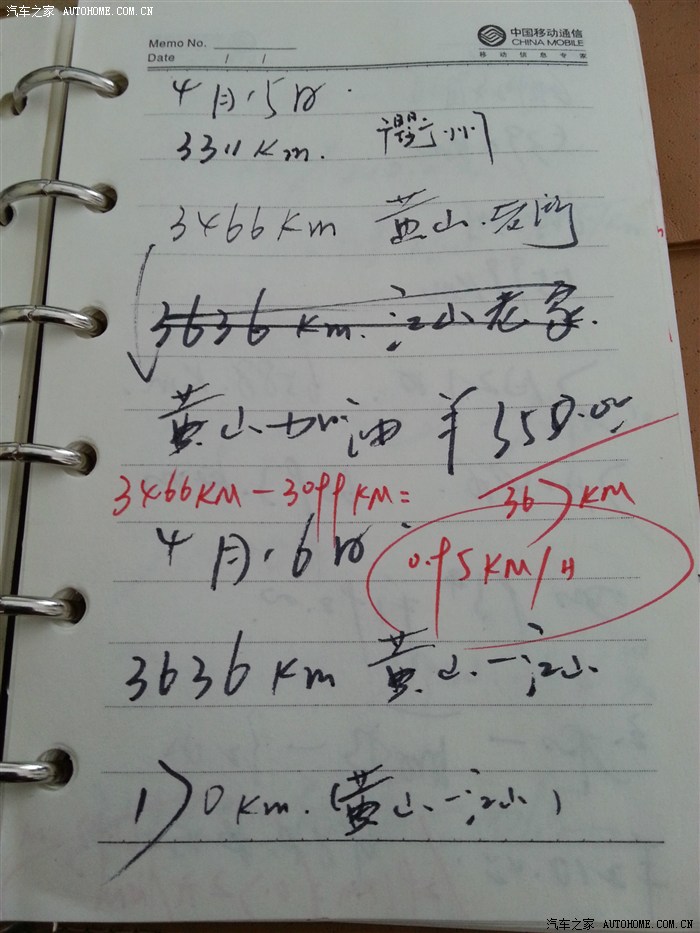 汽车之家 AUTOHOME.COM.CN
中国移动通信
CHINA MOBILE
移动信息专家
Memo No.
Date / /
4月.5日.
3311Km.
3466Km 黄山.后门
3636 Km. 江山老家.
黄山加油 ¥350.00
3466KM-3099KM= 367KM
4月.6日
0.95KM/H
3636Km 黄山-江山
170Km.(黄山-江山)
汽车之家 AUTOHOME.COM.CN